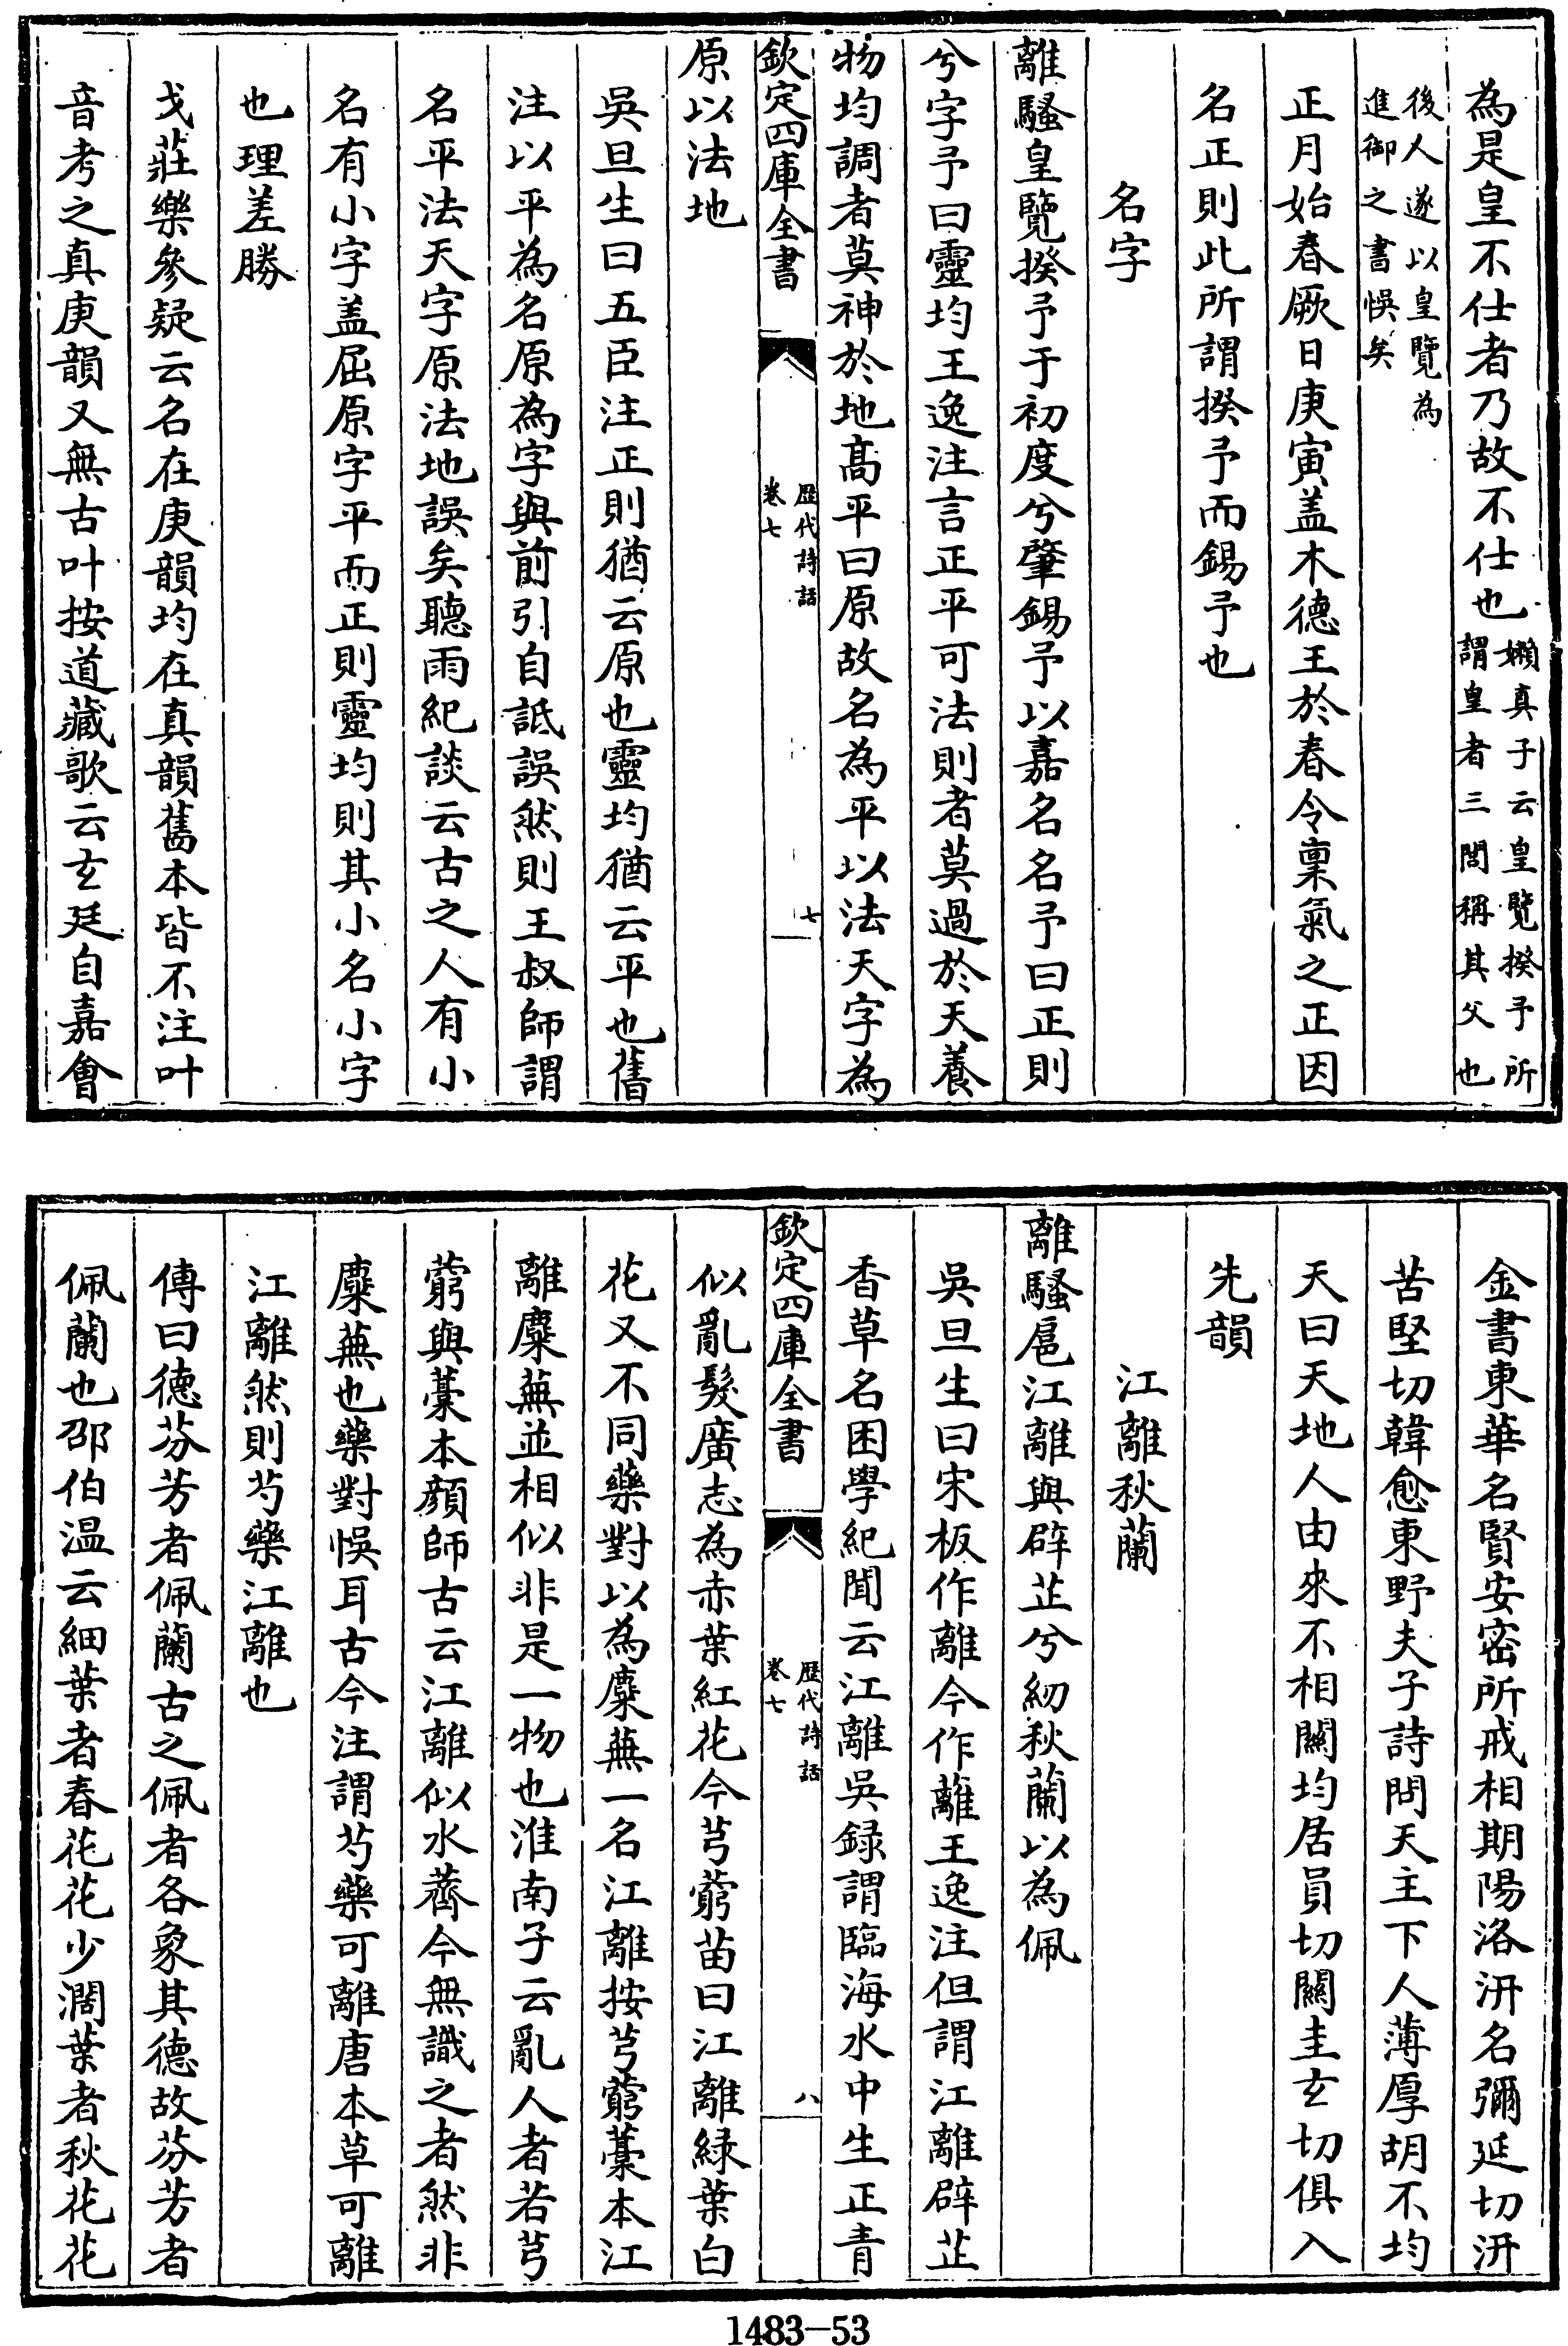 為是皇不仕者乃故不仕也嬾真子云皇覽揆予所
謂皇者三閭稱其父也
後人遂以皇覽為
進御之書悞矣
正月始春厥日庚寅盖木德王於春令稟氣之正因
名正則此所謂揆予而錫予也
名字
離騷皇覽揆予于初度兮肇錫予以嘉名名予曰正則
兮字予曰靈均王逸注言正平可法則者莫過於天養
物均調者莫神於地髙平曰原故名為平以法天字為
欽定四庫全書
歷代詩話
卷七
七
原以法地
吳旦生曰五臣注正則猶云原也靈均猶云平也舊
注以平為名原為字與前引自詆誤然則王叔師謂
名平法天字原法地誤矣聽雨紀談云古之人有小
名有小字盖屈原字平而正則靈均則其小名小字
也理差勝
戈莊樂參疑云名在庚韻均在真韻舊本皆不注叶
音考之真庚韻又無古叶按道藏歌云玄廷自嘉會
金書東華名賢安密所戒相期陽洛汧名彌延切汧
苦堅切韓愈東野夫子詩問天主下人薄厚胡不均
天曰天地人由來不相關均居員切關圭玄切俱入
先韻
江離秋蘭
離騷扈江離與辟芷兮紉秋蘭以為佩
吳旦生曰宋板作離今作蘺王逸注但謂江離辟芷
香草名困學紀聞云江離吳録謂臨海水中生正青
欽定四庫全書
歷代詩話
卷七
八
似亂髮廣志為赤葉紅花今芎藭苗曰江離緑葉白
花又不同藥對以為麋蕪一名江離按芎藭藁本江
離麋蕪並相似非是一物也淮南子云亂人者若芎
藭與藁本顔師古云江離似水薺今無識之者然非
麋蕪也藥對悞耳古今注謂芍藥可離唐本草可離
江離然則芍藥江離也
傳曰德芬芳者佩蘭古之佩者各象其德故芬芳者
佩蘭也邵伯温云細葉者春花花少濶葉者秋花花
1483—53